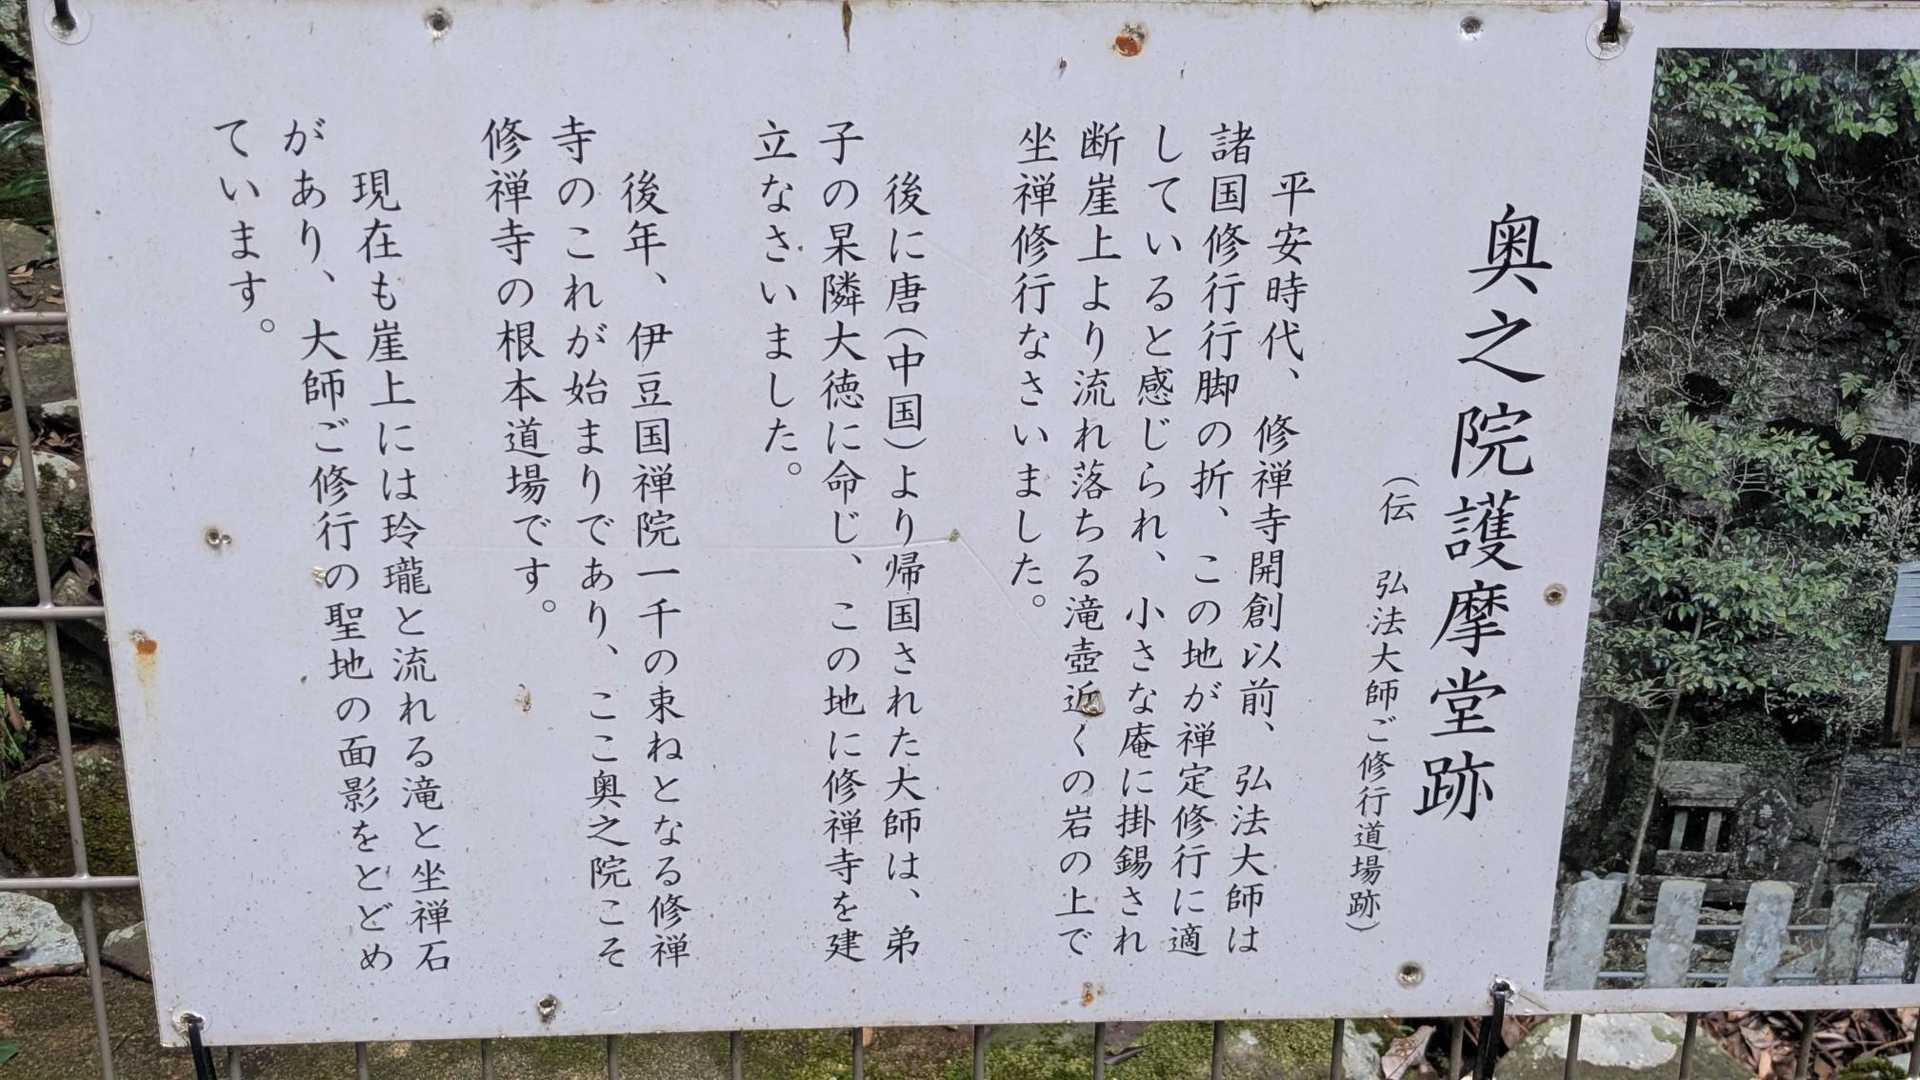 奥之院護摩堂跡
（伝　弘法大師ご修行道場跡）
平安時代、修禅寺開創以前、弘法大師は
諸国修行行脚の折、この地が禅定修行に適
していると感じられ、小さな庵に掛錫され
断崖上より流れ落ちる滝壺近くの岩の上で
坐禅修行なさいました。
後に唐（中国）より帰国された大師は、弟
子の杲隣大徳に命じ、この地に修禅寺を建
立なさいました。
後年、伊豆国禅院一千の束ねとなる修禅
寺のこれが始まりであり、ここ奥之院こそ
修禅寺の根本道場です。
現在も崖上には玲瓏と流れる滝と坐禅石
があり、大師ご修行の聖地の面影をとどめ
ています。